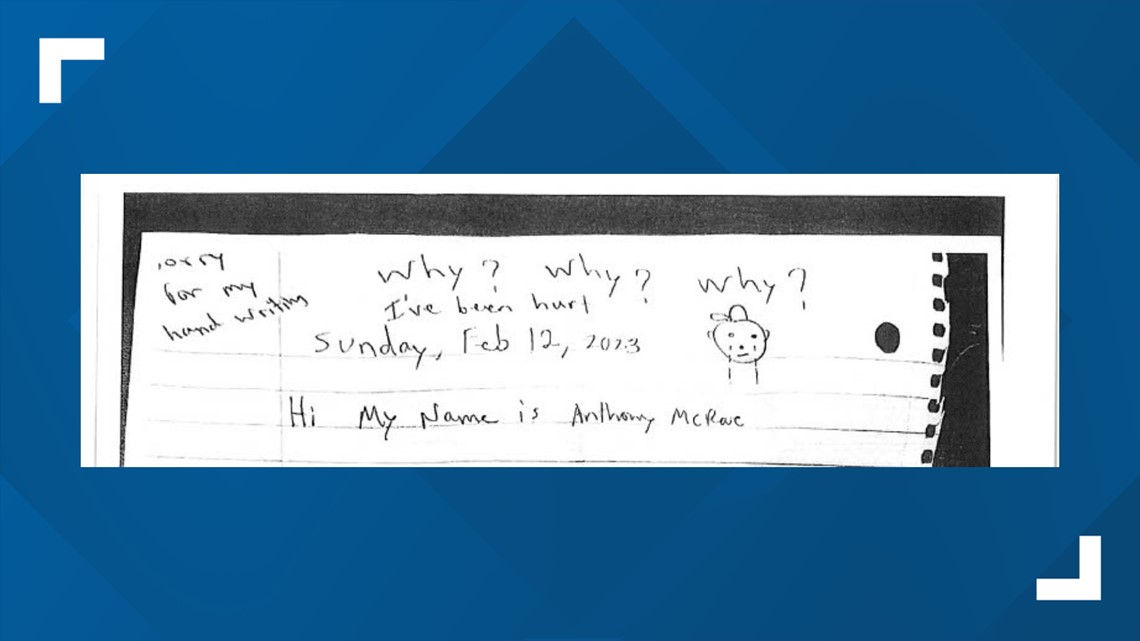 ,orry
for my
hand writing
Why? Why? Why?
I've been hurt
Sunday, Feb 12, 2023
Hi My Name is Anthony McRae